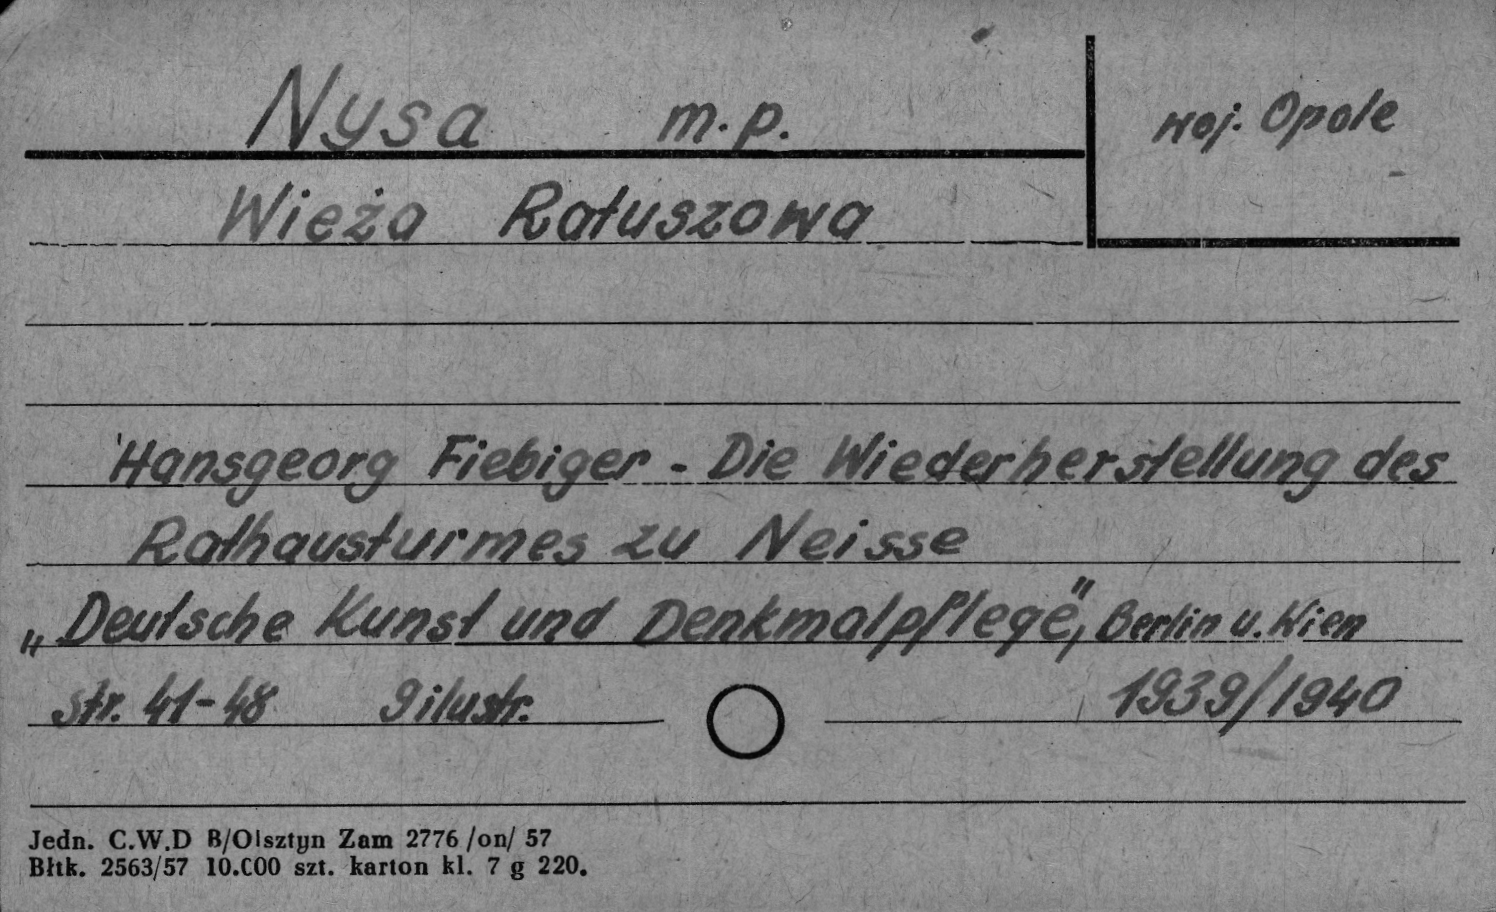 Nysa m.p.
woj. Opole
Wieża Ratuszowa
Hansgeorg Fiebiger - Die Wiederherstellung des
Rathausturmes zu Neisse
„Deutsche Kunst und Denkmalpflege", Berlin u. Wien
str. 41-48 9 ilustr. 1939/1940
Jedn. C.W.D B/Olsztyn Zam 2776 /on/ 57
Błtk. 2563/57 10.000 szt. karton kl. 7 g 220.